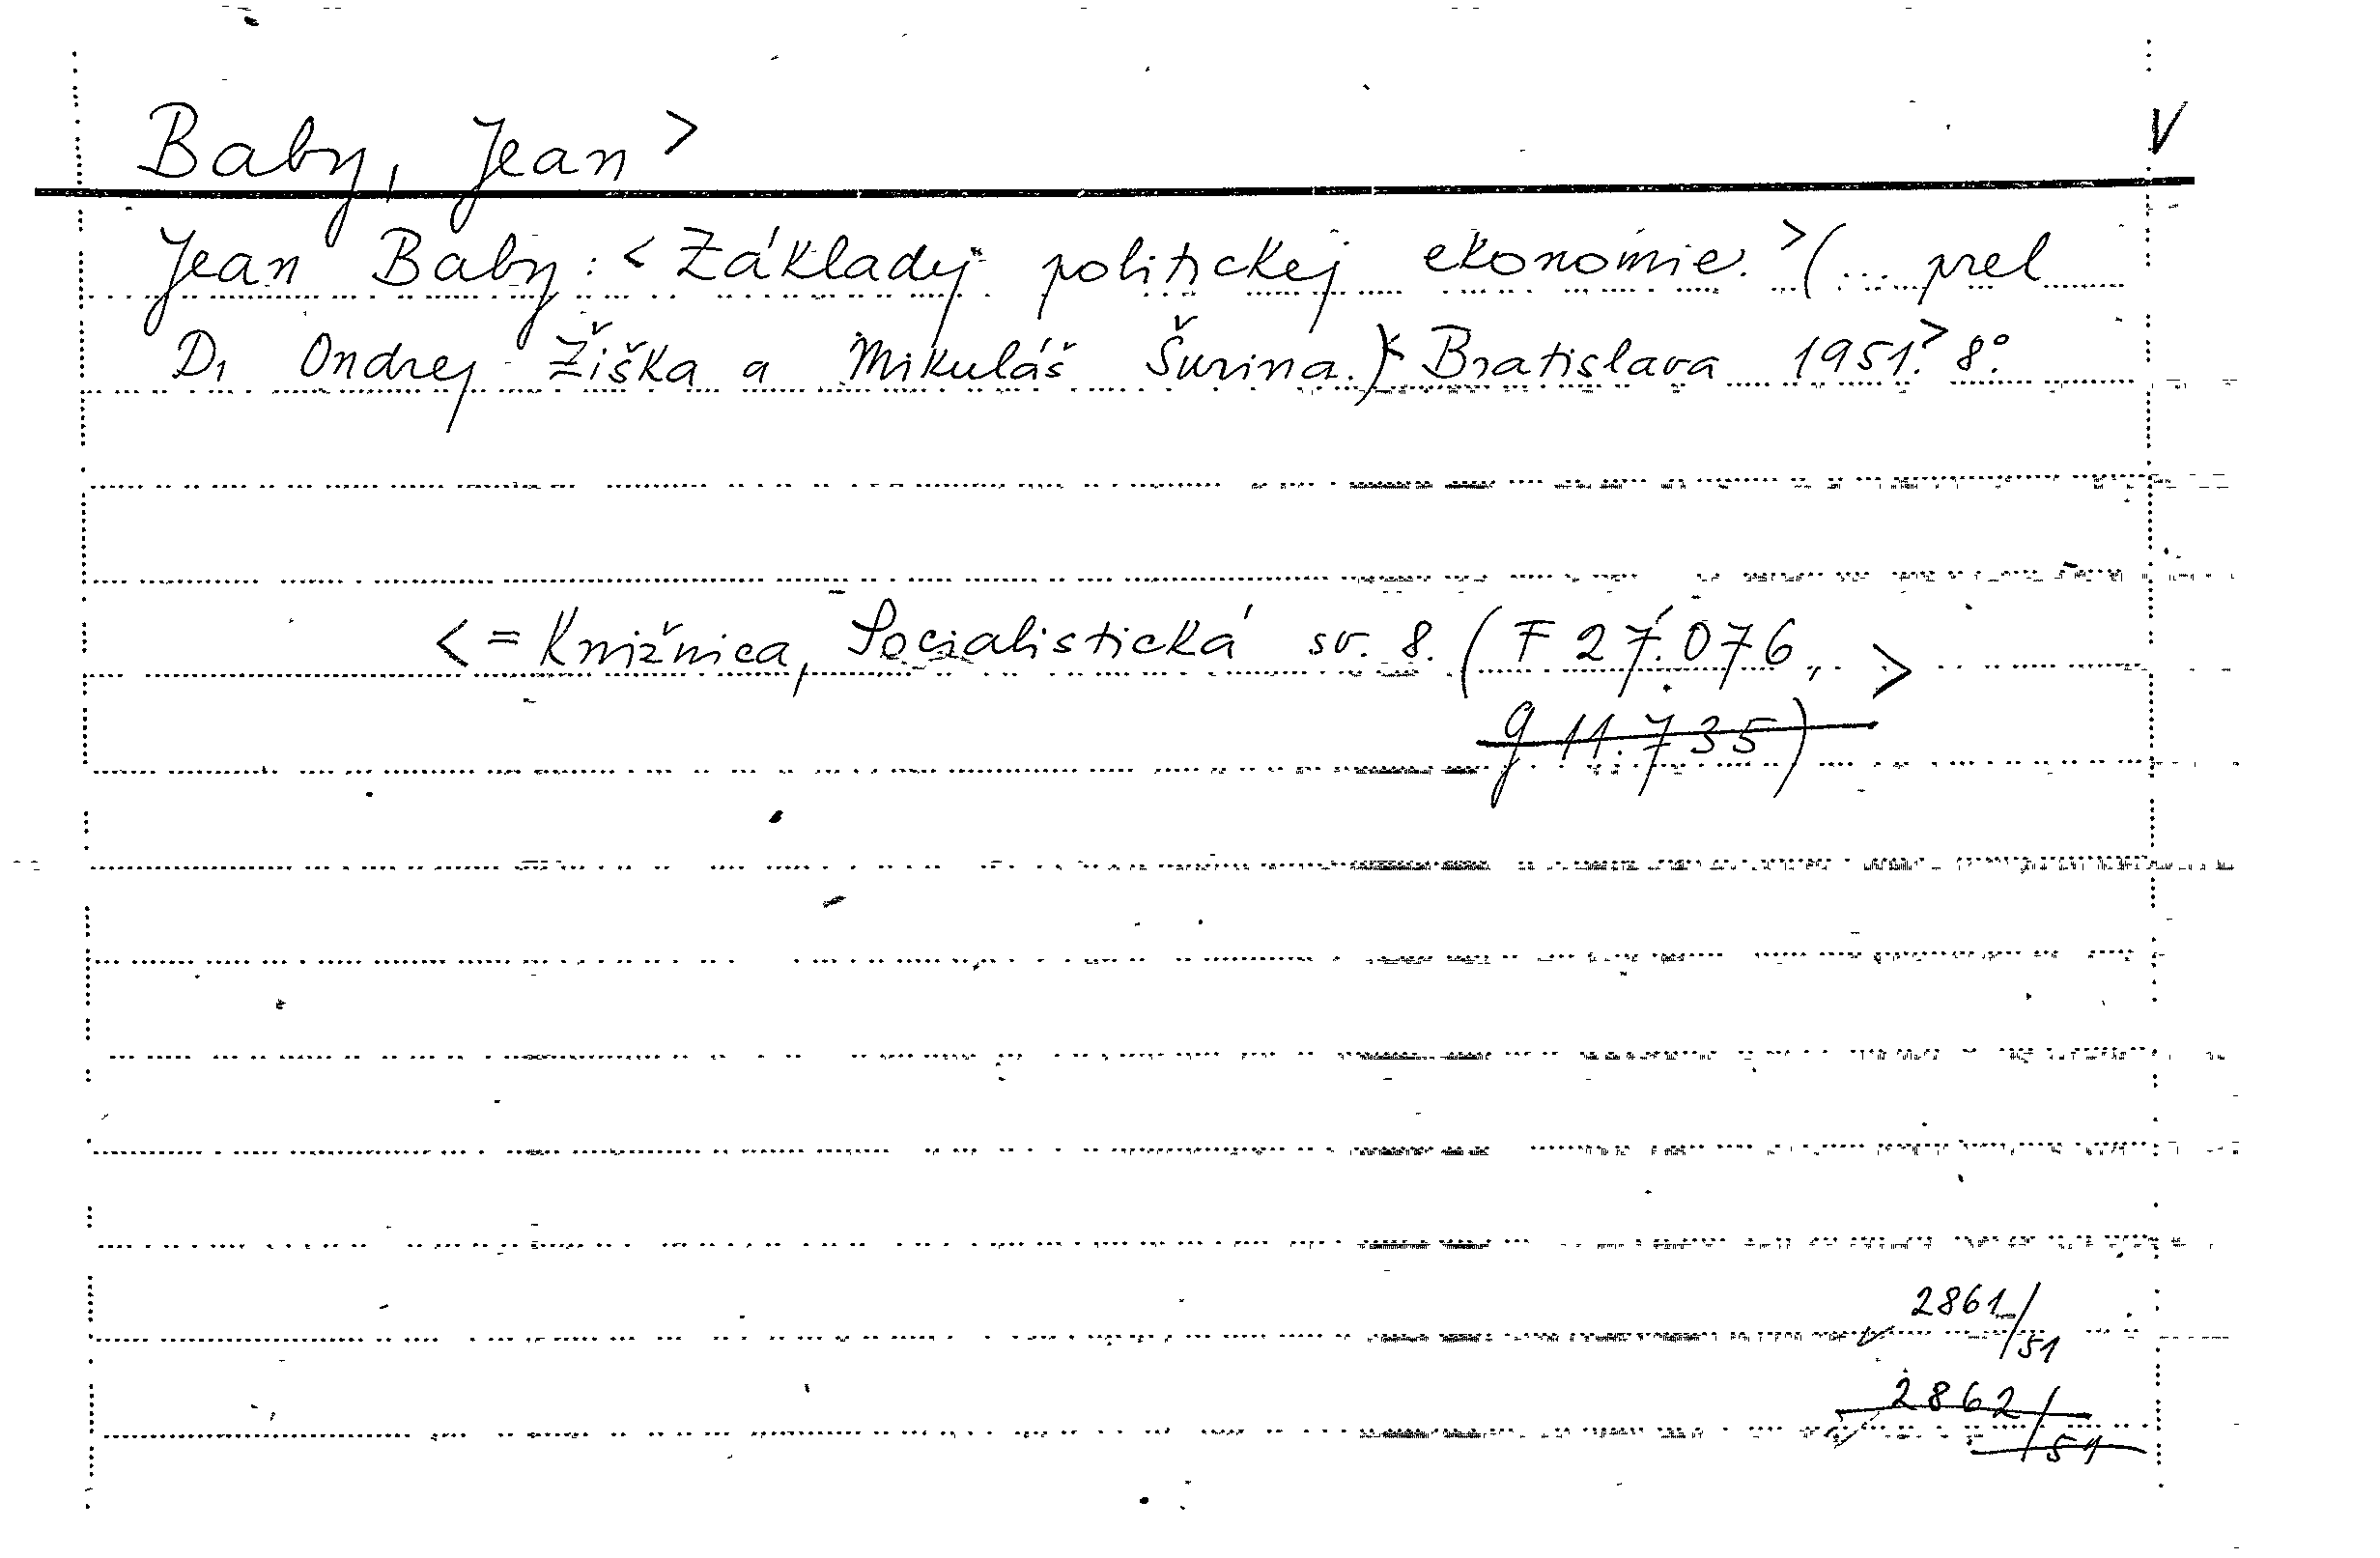 Baby, Jean > V
Jean Baby: < Základy politickej ekonómie. > (... prel
Dr Ondrej Žiška a Mikuláš Šurina.) < Bratislava 1951. > 8°.
< = Knižnica, Socialistická sv. 8. (F 27.076, >
g 11.735)
2861/51
2862/51